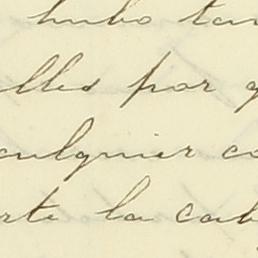 hubo tan
alles por q
cualquier co
rte la cab